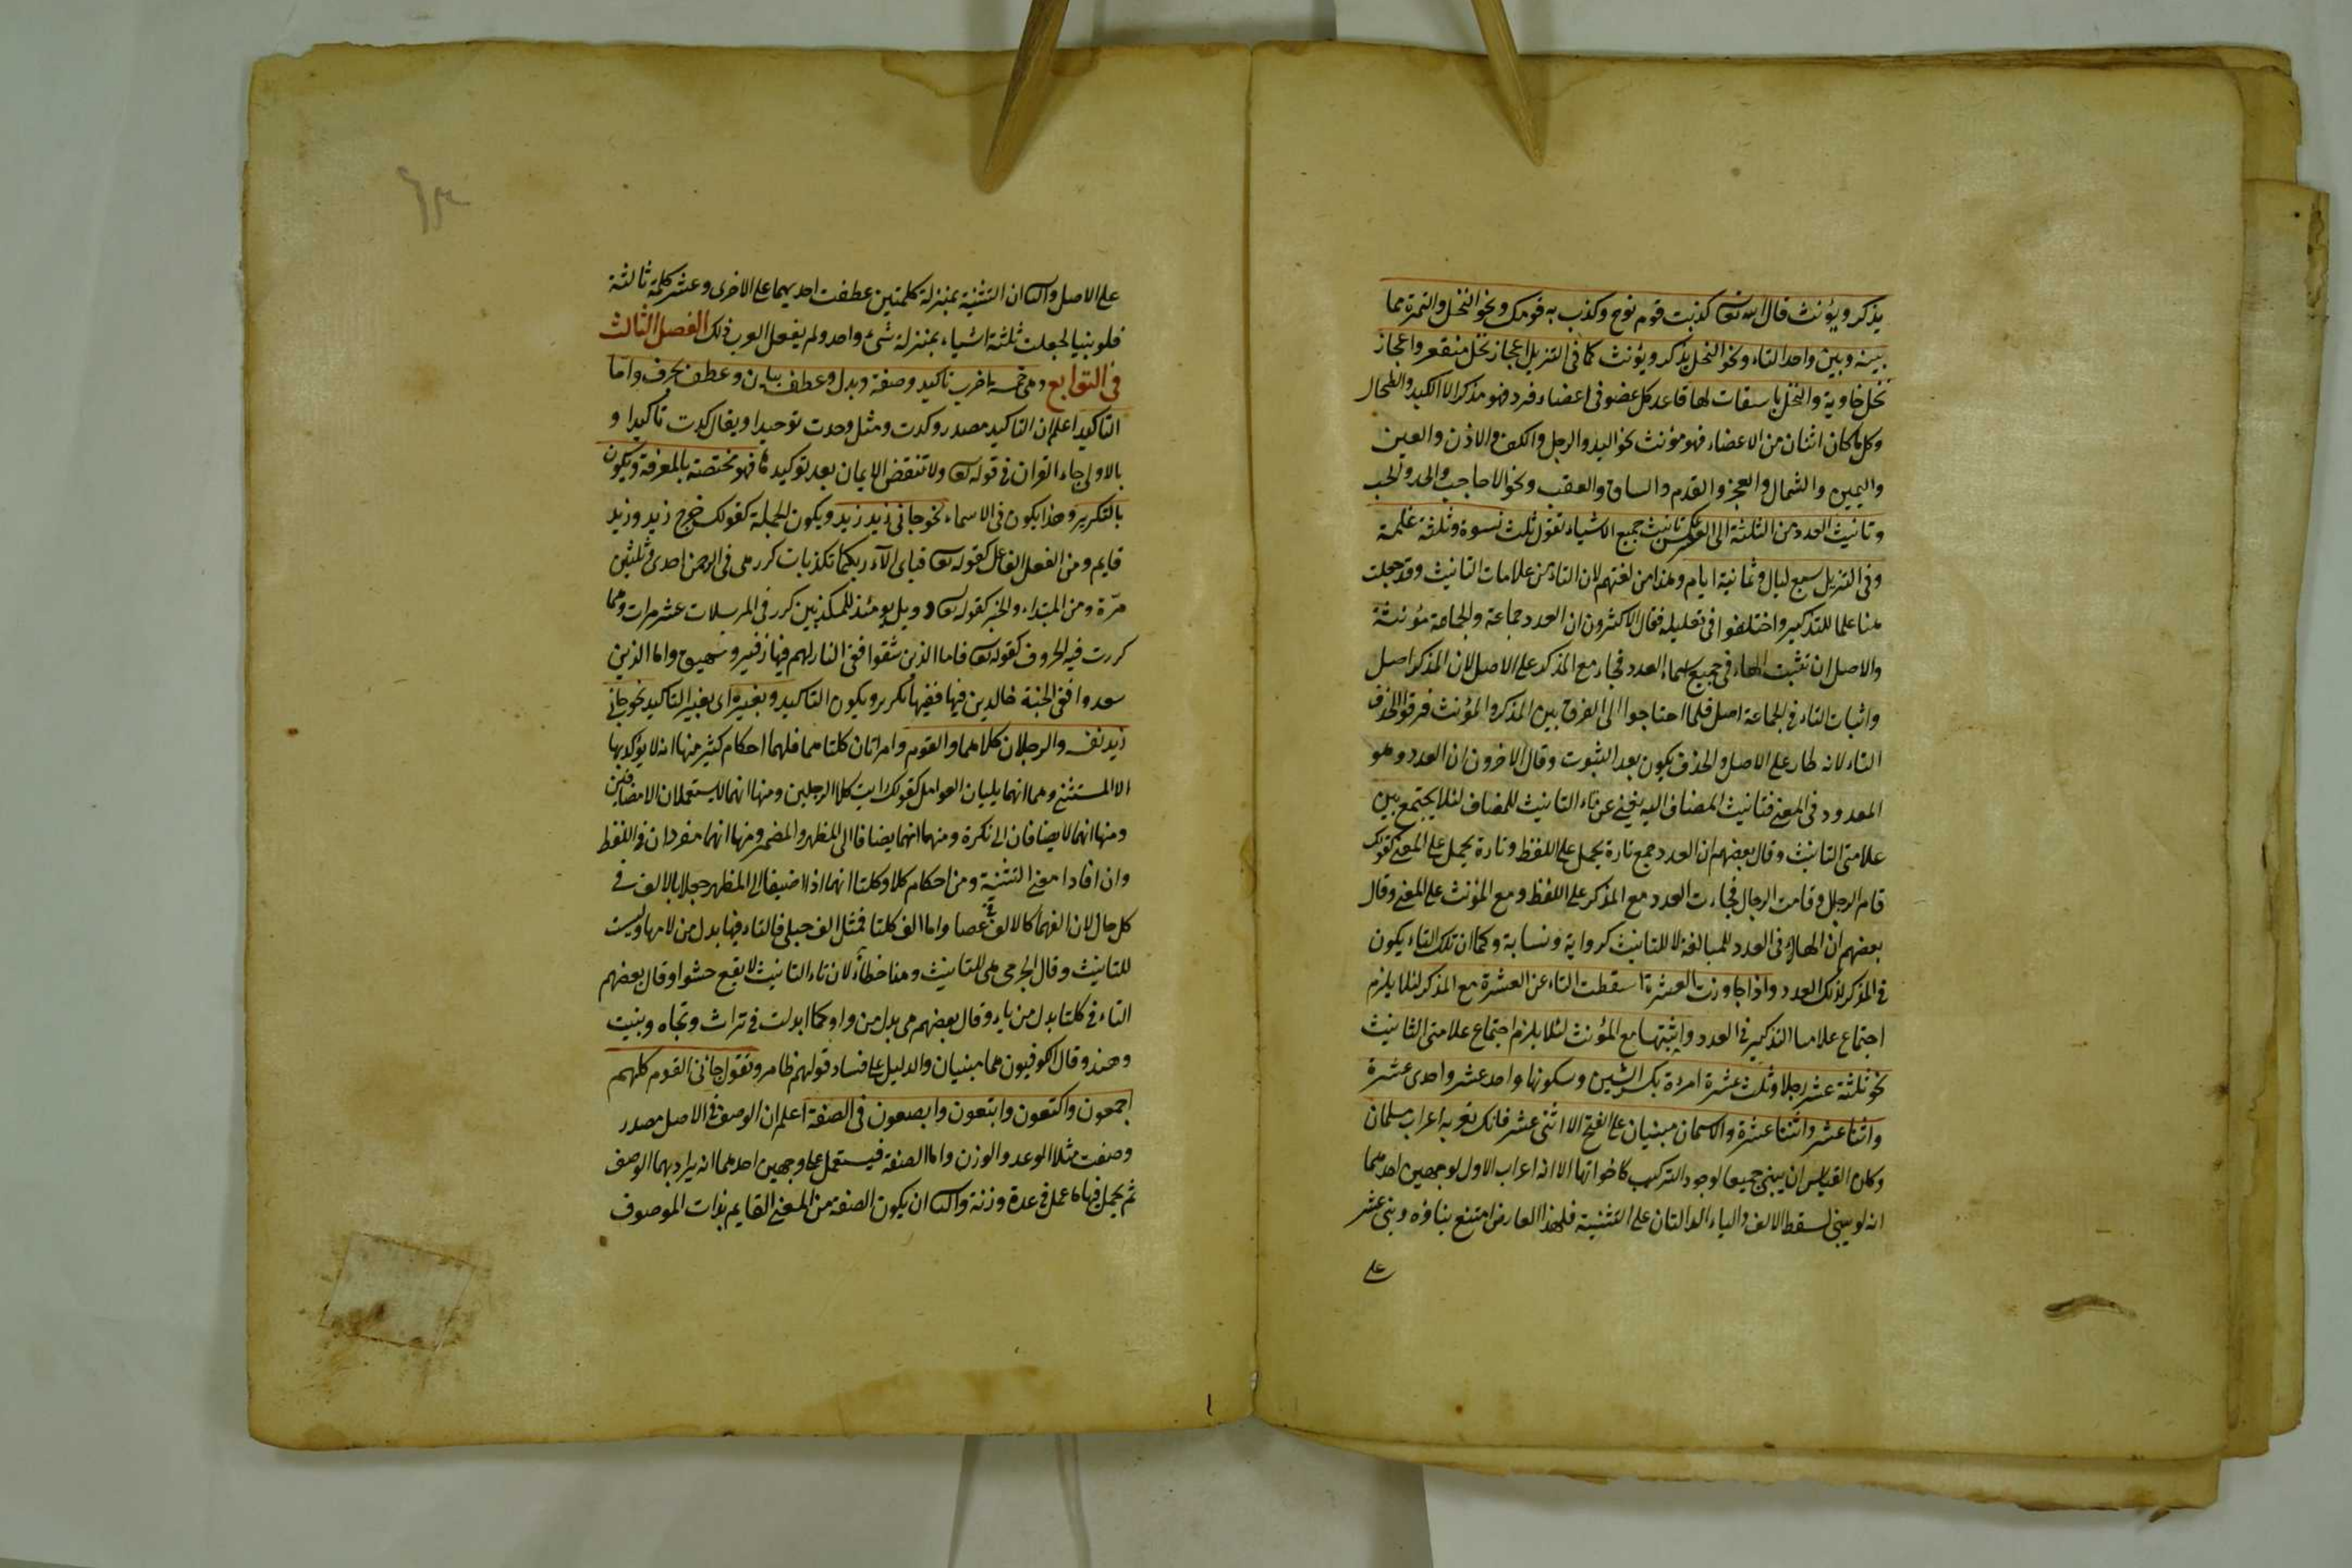 يذكر ويؤنث قال الله تعا كذبت قوم نوح وكذب به قومك ونحو النخل والتمرة مما
بينه وبين واحد التاء ونحو النخل يذكر ويؤنث كما فى التنزيل اعجاز نخل منقعر واعجاز
نخل خاوية والنخل باسقات لها قاعد كل عضو فى اعضاء فرد فهو مذكر الا الكبد والطحال
وكل ما كان اثنان من الاعضاء فهو مؤنث نحو اليد والرجل والكف والاذن والعين
واليمين والشمال والعجز والقدم والساق والعقب ونحو الا حاجب والخد والجنب
وتانيث العدد من الثلثة الى العشر عكس تانيث جميع الاشياء تقول ثلث نسوة وثلثة غلمة
وفى التنزيل سبع ليال وثمانية ايام وهذا من لغتهم لان التاء من علامات التانيث وقد جعلت
هنا علما للتذكير واختلفوا فى تعليله فقال الاكثرون ان العدد جماعة والجماعة مؤنثة
والاصل ان تثبت الهاء فى جميع اسماء العدد فجاء مع المذكر على الاصل لان المذكر اصل
واثبات التاء فى الجماعة اصل فلما احتاجوا الى الفرق بين المذكر والمؤنث فرقوا بحذف
التاء لانه طار على الاصل والحذف يكون بعد الثبوت وقال الاخرون ان العدد وهو
المعدود فى المعنى فتانيث المضاف اليه يغنى عن تاء التانيث للمضاف لئلا يجتمع بين
علامتى التانيث وقال بعضهم ان العدد جمع تارة يحمل على اللفظ وتارة يحمل على المعنى كقولك
قام الرجل وقامت الرجال فجاءت العدد مع المذكر على اللفظ ومع المؤنث على المعنى وقال
بعضهم ان الهاء فى العدد للمبالغة لا للتانيث كرواية ونسابة وكما ان تلك التاء يكون
فى المذكر لذلك العدد واذا جاوزت العشرة اسقطت التاء عن العشرة مع المذكر لئلا يلزم
اجتماع علامتا التذكير فى العدد واثبتها مع المؤنث لئلا يلزم اجتماع علامتى التانيث
نحو ثلثة عشر رجلا وثلث عشرة امرءة بكسر الشين وسكونها واحد عشر واحدى عشرة
واثنا عشر واثنتا عشرة والاسمان مبنيان على الفتح الا اثنى عشر فانك تعربه اعراب مسلمان
وكان القياس ان يبنى جميعا لوجود التركيب كاخواتها الا انه اعراب الاول لوجهين احدهما
انه لو بنى لسقط الالف والياء الدالتان على التثنية فلهذا العارض امتنع بناؤه وبنى عشر
على
على الاصل والثا ان التثنية بمنزلة كلمتين عطفت احديهما على الاخرى وعشر كلمة ثالثة
فلو بنيا لجعلت ثلثة اشياء بمنزلة شئ واحد ولم يفعل العرب ذلك الفصل الثالث
فى التوابع وهى خمسة اضرب تاكيد وصفة وبدل وعطف بيان وعطف بحرف واما
التاكيد اعلم ان التاكيد مصدر وكدت ومثل وحدت توحيدا ويقال اكدت تاكيدا و
بالاولى جاء القران فى قوله تعا ولا تنقض الايمان بعد توكيدها فهو مختصة بالمعرفة ويكون
بالتكرير وهذا يكون فى الاسماء نحو جانى زيد زيد ويكون للجملة كقولك خرج زيد وزيد
قايم ومن الفعل الفاعل كقوله تعا فباى الآء ربكما تكذبان كرر هى فى الرحمن احدى وثلثين
مرّة ومن المبتداء والخبر كقوله تعا ويل يومئذ للمكذبين كرر فى المرسلات عشر مرات ومما
كررت فيه الحروف كقوله تعا فاما الذين شقوا ففى النار لهم فيها زفير وشهيق واما الذين
سعدوا ففى الجنة خالدين فيها ففيها مكرر ويكون التاكيد وبغيره اى بغير التاكيد نحو جانى
زيد نفسه والرجلان كلاهما والقوم وامراتان كلتاهما فلهما احكام كثير منها انه لا يؤكد بها
الا المستثنى وهما انهما يليان العوامل كقولك رايت كلا الرجلين ومنها انهما لا يستعملان الا مضافين
ومنها انهما لا يضافان الى نكرة ومنهما انهما يضافا الى المظهر والمضمر ومنها انهما مفردان فى اللفظ
وان افادا معنى التثنية ومن احكام كلا وكلتا انهما اذا اضيفا الى المظهر جعلا بالالف فى
كل حال لان الفهما كالالف عصا واما الف كلتا فمثل الف حبلى فالتاء فيها بدل من لامها وليست
للتانيث وقال الجرمى هى للتانيث وهنا خطاء لان تاء التانيث لا يقع حشوا وقال بعضهم
التاء فى كلتا بدل من ياء وقال بعضهم هى بدل من واو كما ابدلت فى تراث وتجاه وبنيت
وهند وقال الكوفيون هما مبنيان والدليل على فساد قولهم ظاهر وتقول جانى القوم كلهم
اجمعون واكتعون وابتعون وابصعون فى الصفة اعلم ان الوصف فى الاصل مصدر
وصفت مثلا الوعد والوزن واما الصفة فيستعمل على وجهين احدهما انه يراد بهما الوصف
ثم يحمل فيها ما عمل فى عدة وزنة والثا ان يكون الصفة من المعنى القايم بذات الموصوف